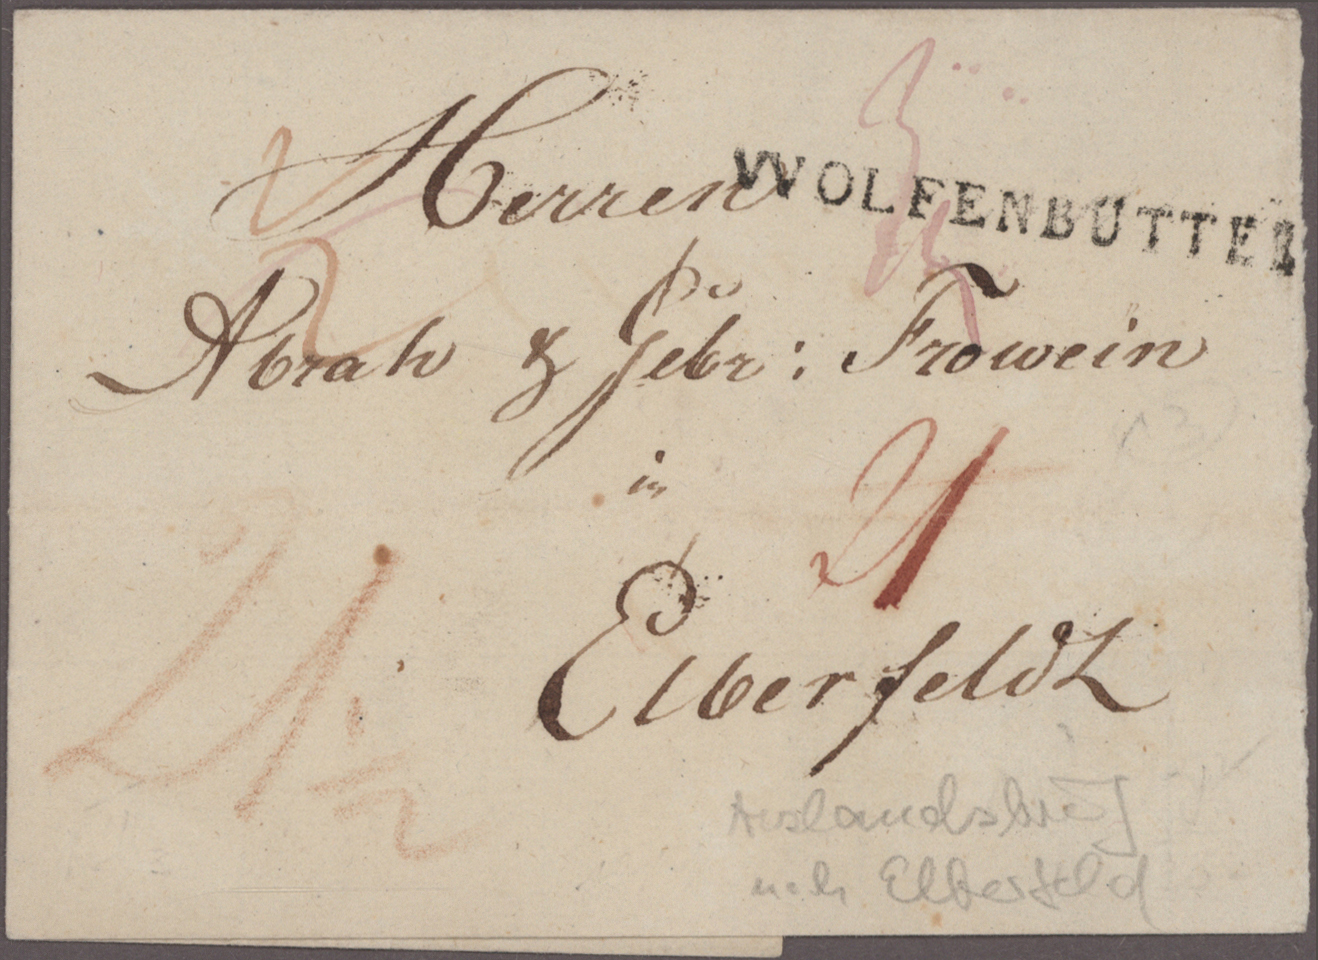 Herren
WOLFENBÜTTEL
Abrah & Gebr: Frowein
in
Elberfeldt
Auslandsbrief
nach Elberfeld